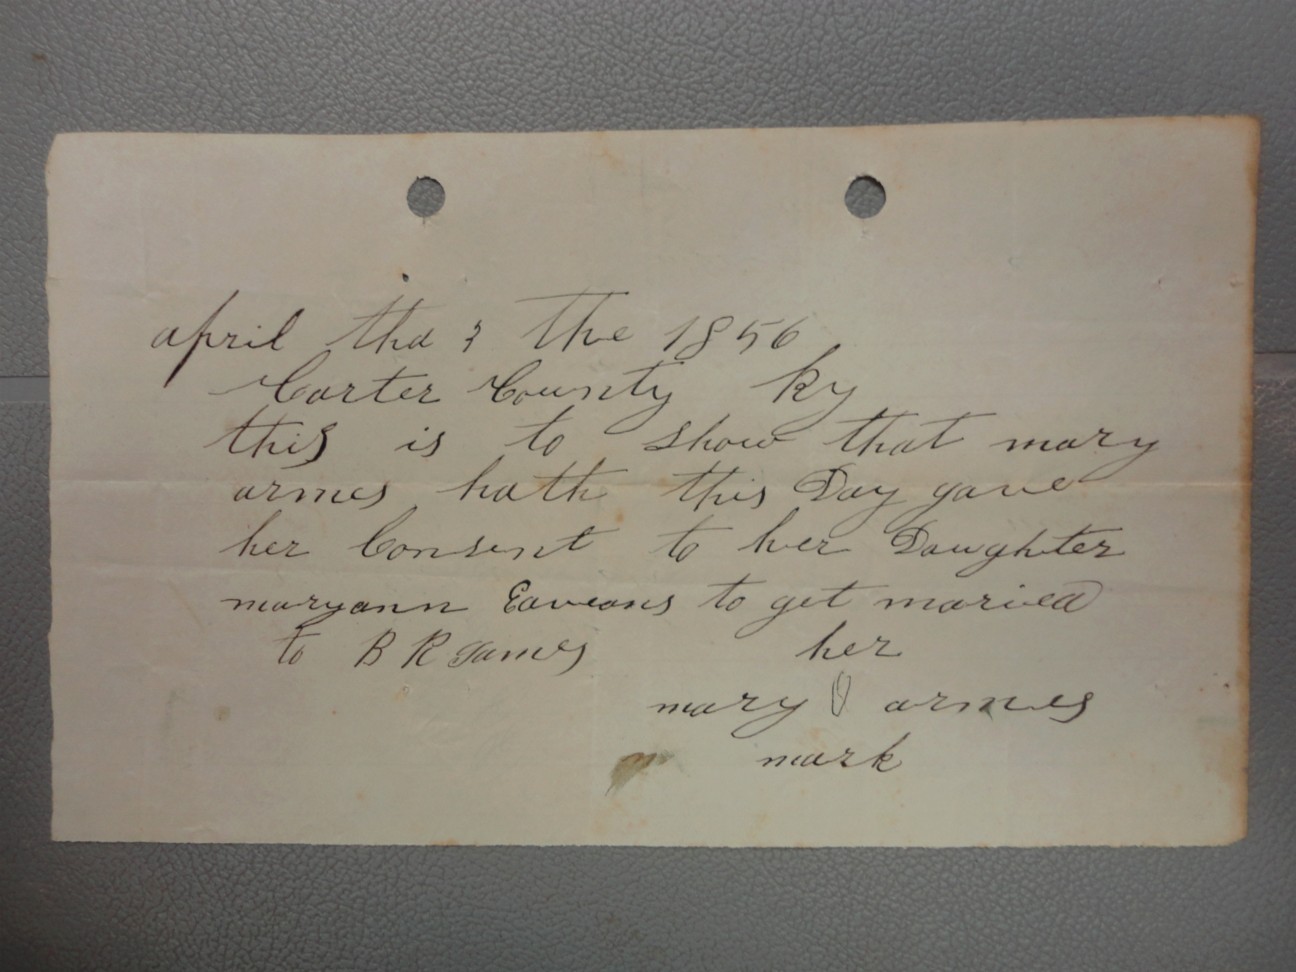 april tha 3 the 1856
Carter County Ky
this is to show that mary
armes hath this Day gave
her Consent to her Daughter
maryann Eaveans to get maried
to B R James her
mary armes
mark